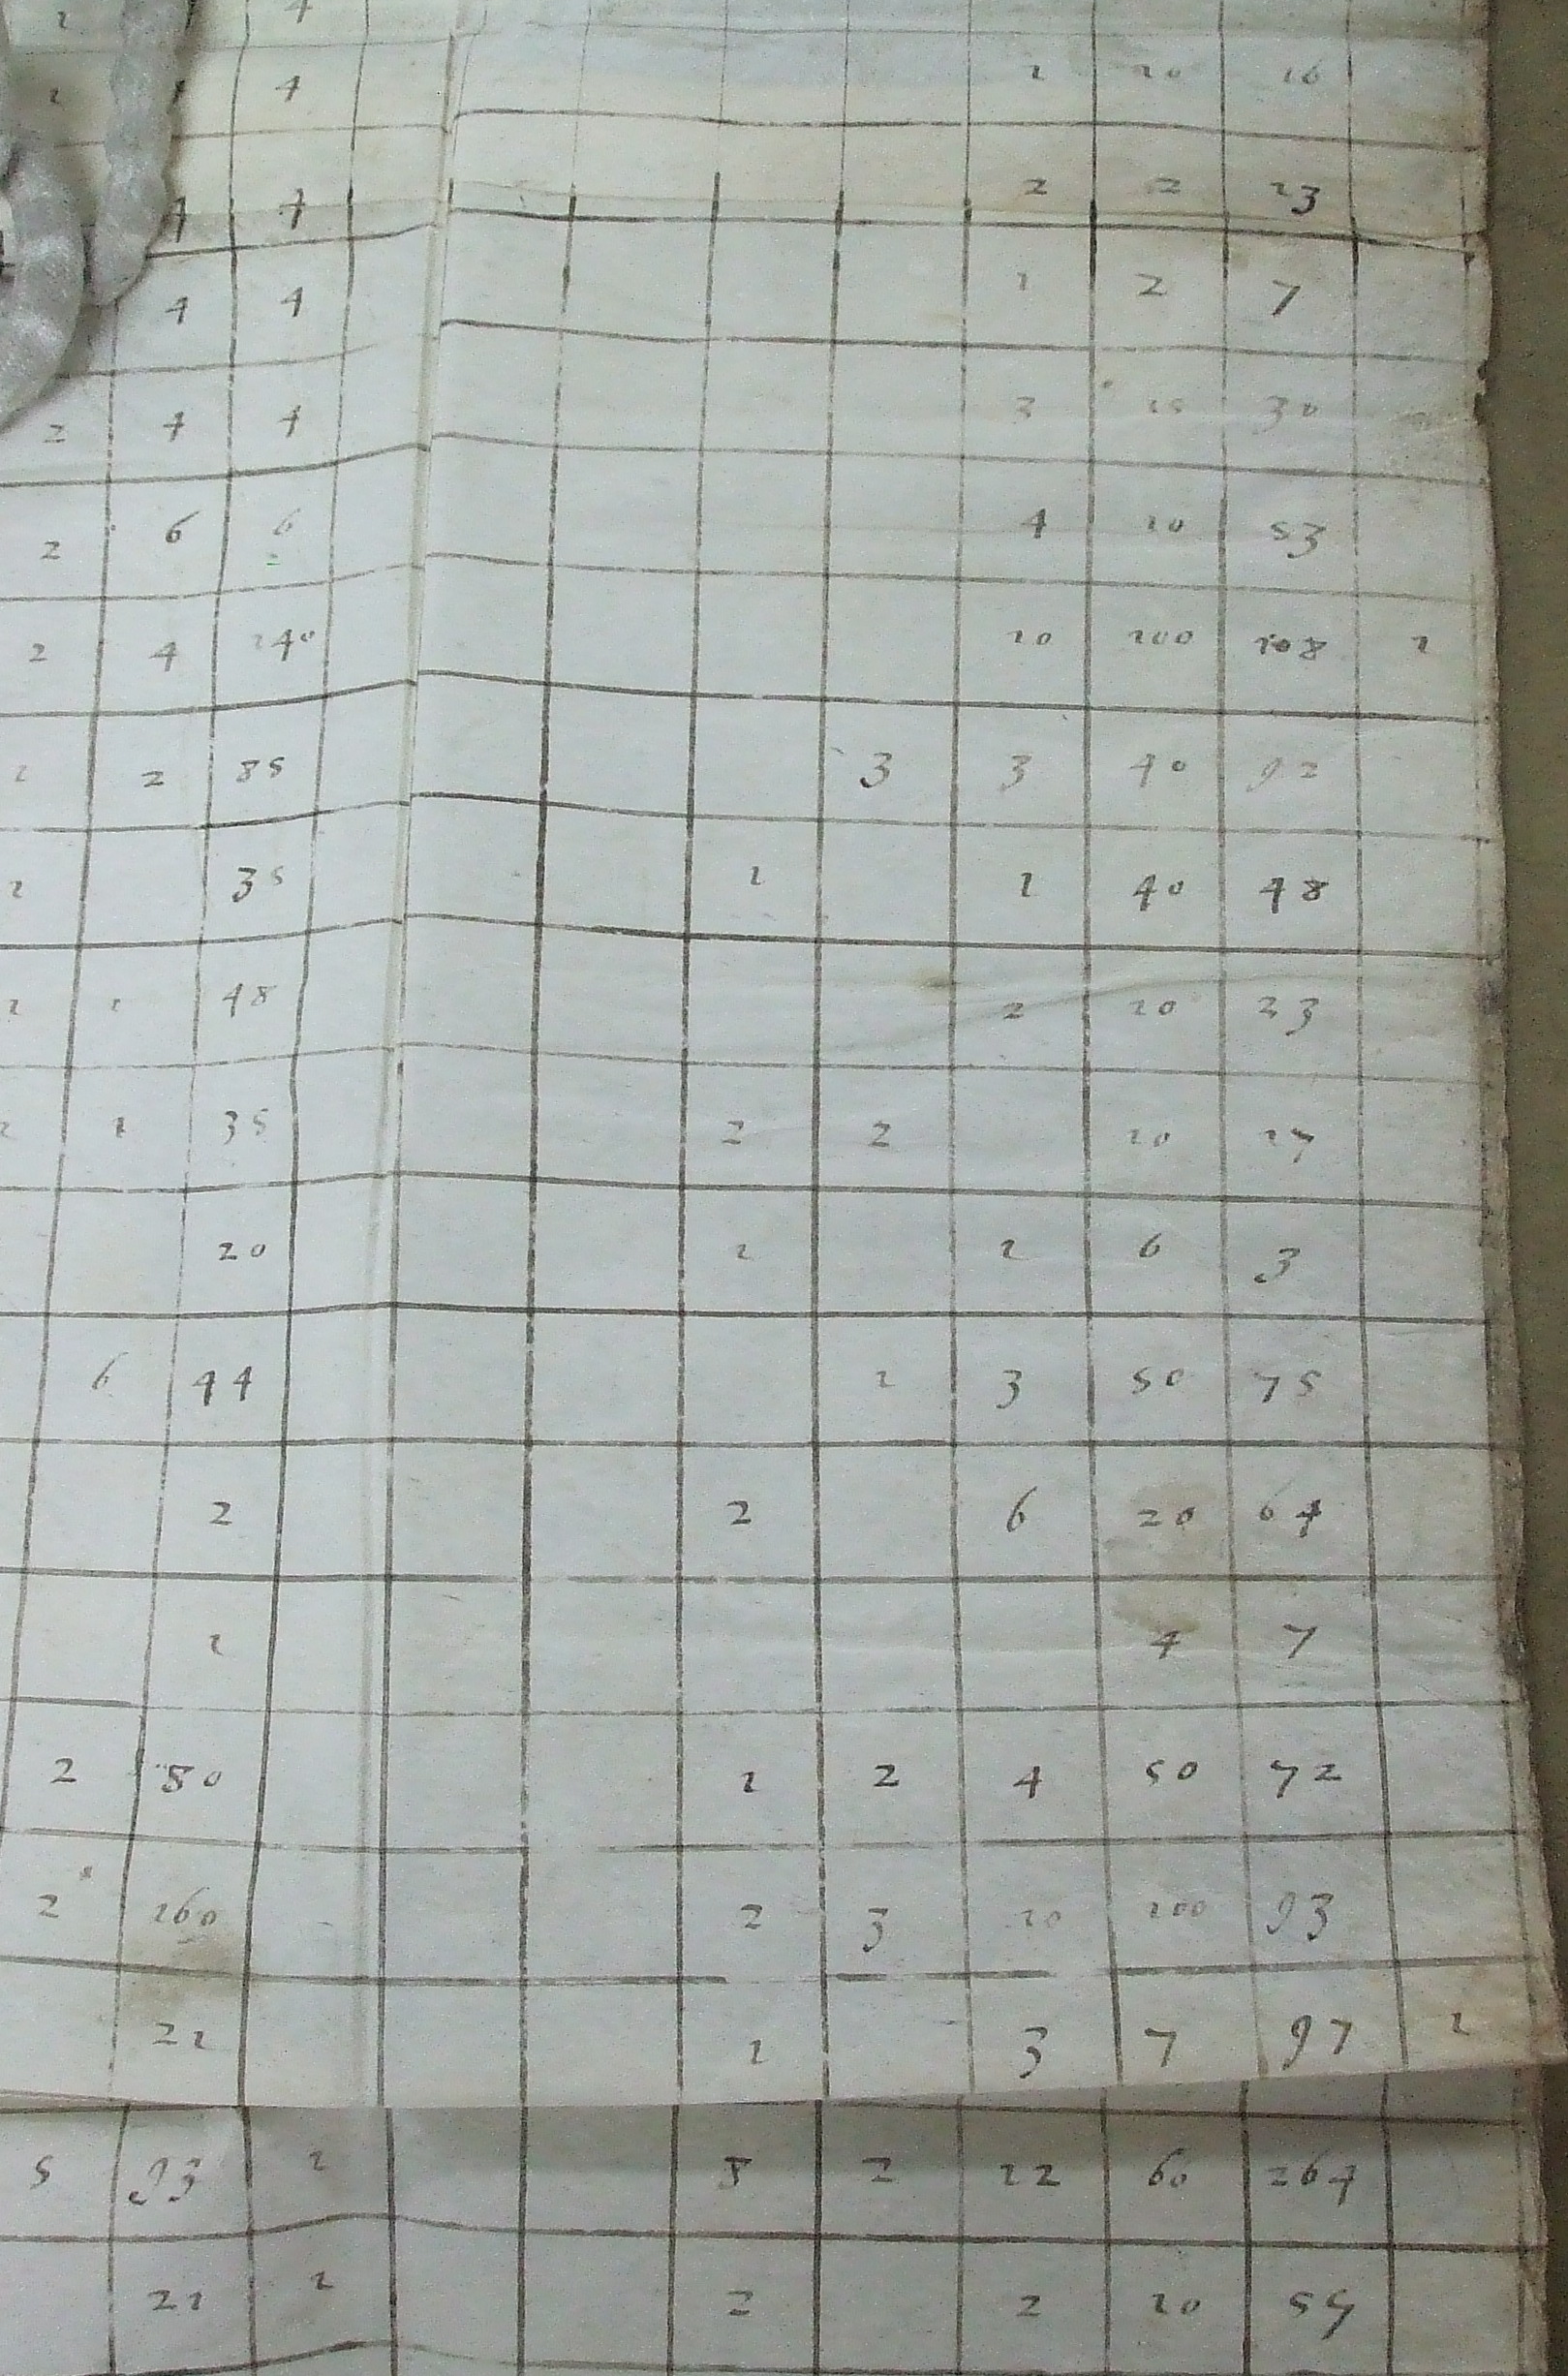 1 4
1 4 1 10 16
4 4 2 2 13
4 4 1 2 7
2 4 4 3 15 30
2 6 6 4 10 53
2
2 4 140 10 100 108 1
1 2 85 3 3 40 92
1 35 1 1 40 48
1 1 48 2 10 23
1 1 35 2 2 10 17
20 1 1 6 3
6 44 1 3 50 75
2 2 6 20 64
1 4 7
2 80 1 2 4 50 72
2 160 2 3 10 100 93
21 1 3 7 97 1
5 93 1 8 2 12 60 264
21 1 2 2 10